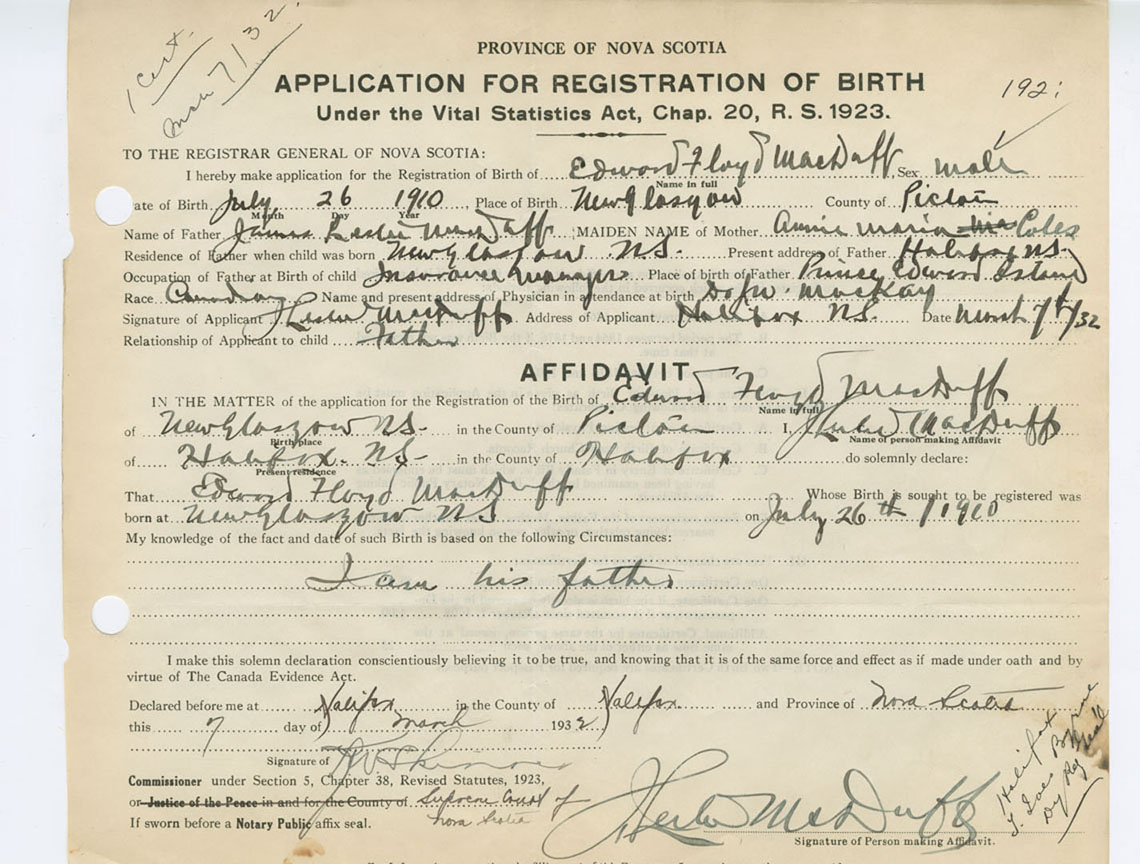 1 Cert.
Mch 7/32.
PROVINCE OF NOVA SCOTIA
APPLICATION FOR REGISTRATION OF BIRTH
Under the Vital Statistics Act, Chap. 20, R. S. 1923.
192
TO THE REGISTRAR GENERAL OF NOVA SCOTIA:
I hereby make application for the Registration of Birth of Edward Floyd MacDuff Sex male
Name in full
ate of Birth July 26 1910, Place of Birth New Glasgow County of Pictou
Month Day Year
Name of Father James Leslie MacDuff MAIDEN NAME of Mother Annie Maria Coles
Residence of Father when child was born New Glasgow N.S. Present address of Father Halifax N.S.
Occupation of Father at Birth of child Insurance Manager Place of birth of Father Prince Edward Island
Race Canadian Name and present address of Physician in attendance at birth MacKay
Signature of Applicant J Leslie MacDuff Address of Applicant Halifax N.S. Date March 7th/32
Relationship of Applicant to child Father
AFFIDAVIT
IN THE MATTER of the application for the Registration of the Birth of Edward Floyd MacDuff
Name in full
of New Glasgow N.S. in the County of Pictou I, J Leslie MacDuff
Birth place Name of person making Affidavit
of Halifax N.S. in the County of Halifax do solemnly declare:
Present residence
That Edward Floyd MacDuff Whose Birth is sought to be registered was
born at New Glasgow N S on July 26th/1910
My knowledge of the fact and date of such Birth is based on the following Circumstances:
I am his father
I make this solemn declaration conscientiously believing it to be true, and knowing that it is of the same force and effect as if made under oath and by
virtue of The Canada Evidence Act.
Declared before me at Halifax in the County of Halifax and Province of Nova Scotia
this 7 day of March 1932
Signature of
Commissioner under Section 5, Chapter 38, Revised Statutes, 1923,
or Justice of the Peace in and for the County of Supreme Court of
Nova Scotia
If sworn before a Notary Public affix seal.
J Leslie MacDuff
Signature of Person making Affidavit.
Halifax
Dy Reg